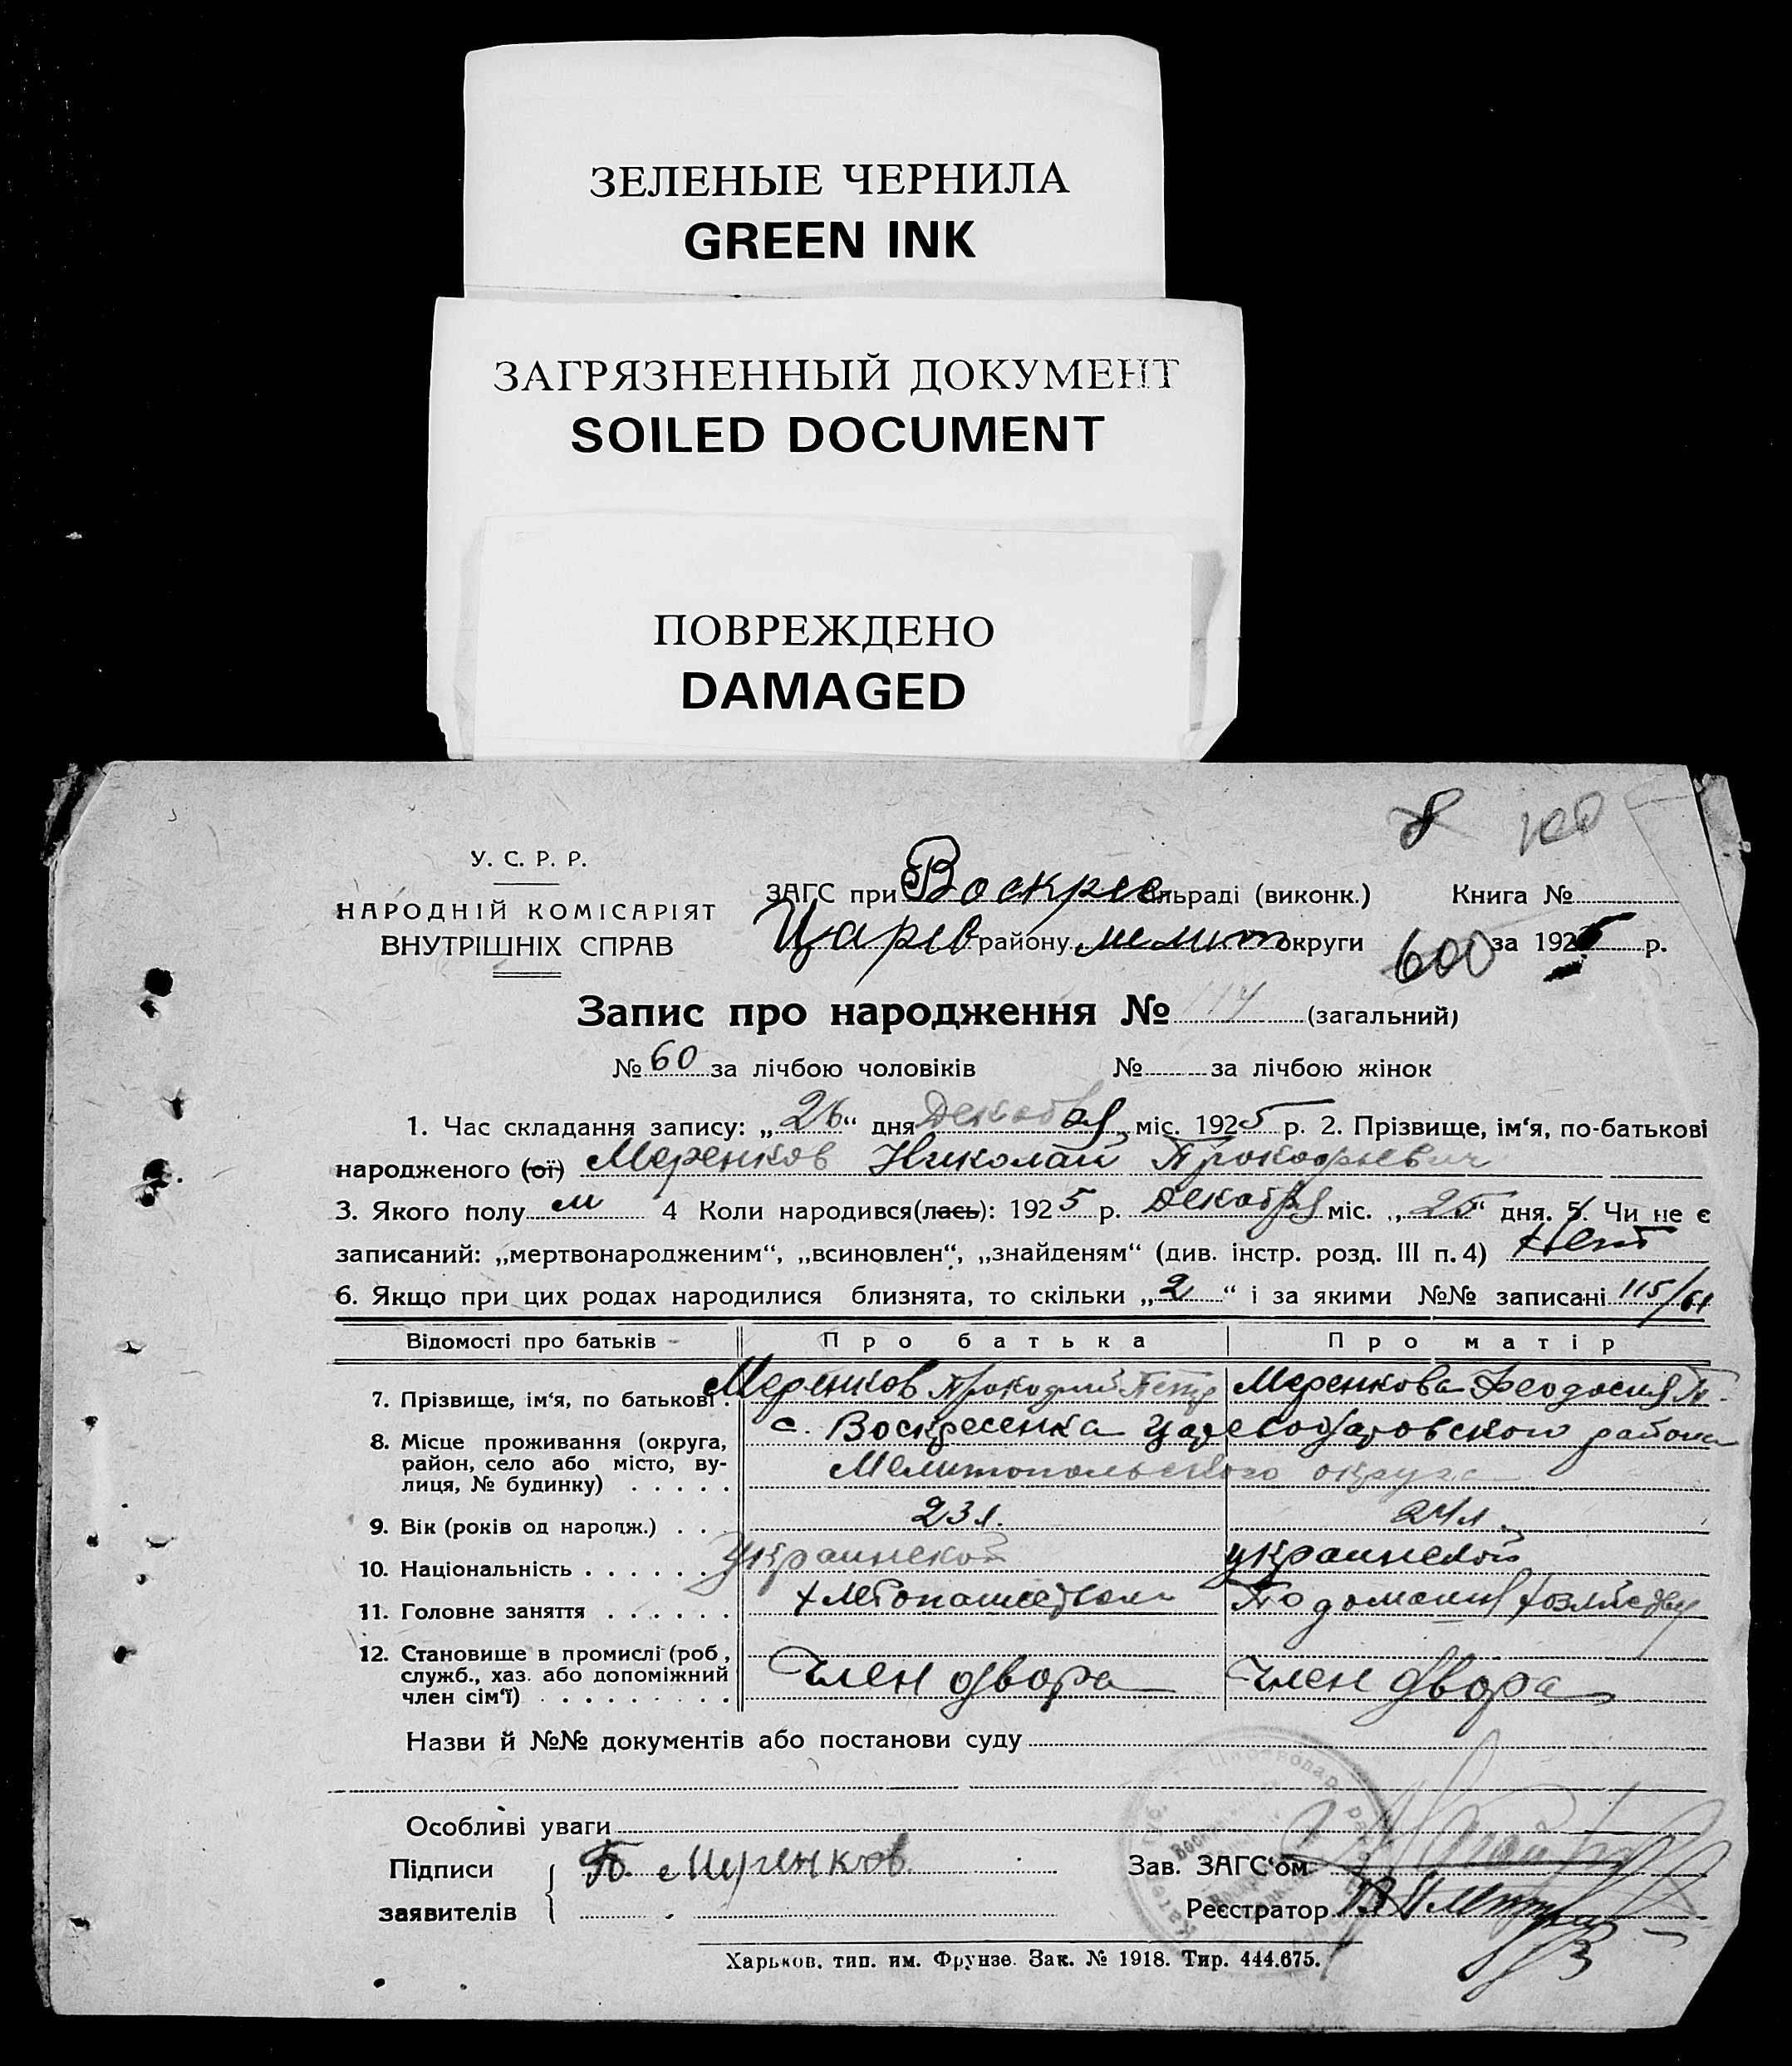 ЗЕЛЕНЫЕ ЧЕРНИЛА
GREEN INK
ЗАГРЯЗНЕННЫЙ ДОКУМЕНТ
SOILED DOCUMENT
ПОВРЕЖДЕНО
DAMAGED
8
У. С. Р. Р.
НАРОДНІЙ КОМІСАРІЯТ
ВНУТРІШНІХ СПРАВ
ЗАГС при Воскрес льраді (виконк.) Книга №
Царев району мелит округи 600 за 1925 р.
Запис про народження № 114 (загальний)
№ 60 за лічбою чоловіків № за лічбою жінок
1. Час складання запису: „26“ дня Декабря міс. 1925 р. 2. Прізвище, ім‘я, по-батькові
народженого (ої) Меренков Николай Прокофьевич
3. Якого полу м 4 Коли народився(лась): 1925 р. Декабря міс. „25“ дня. 5. Чи не є
записаний: „мертвонародженим“, „всиновлен“, „знайденям“ (див. інстр. розд. III п. 4) Нет
6. Якщо при цих родах народилися близнята, то скільки „2“ і за якими №№ записані 115/61
Відомості про батьків Про батька Про матір
7. Прізвище, ім‘я, по батькові . Меренков Прокофий Петр Меренкова Феодосия П.
8. Місце проживання (округа, район, село або місто, вулиця, № будинку) . . . . . с. Воскресенка Цареводаровского района
Мелитопольского округа
9. Вік (років од народж.) . . 23 л. 24 л.
10. Національність . . . . . . Украинской украинской
11. Головне заняття . . . . . . хлебопашеством По домашн хозяйству
12. Становище в промислі (роб., служб., хаз. або допоміжний член сім‘ї) . . . . . . . . . Член двора Член двора
Назви й №№ документів або постанови суду
Особливі уваги
Підписи П. Меренков Зав. ЗАГС‘ом
заявителів Реєстратор
Харьков. тип. им. Фрунзе. Зак. № 1918. Тир. 444.675.